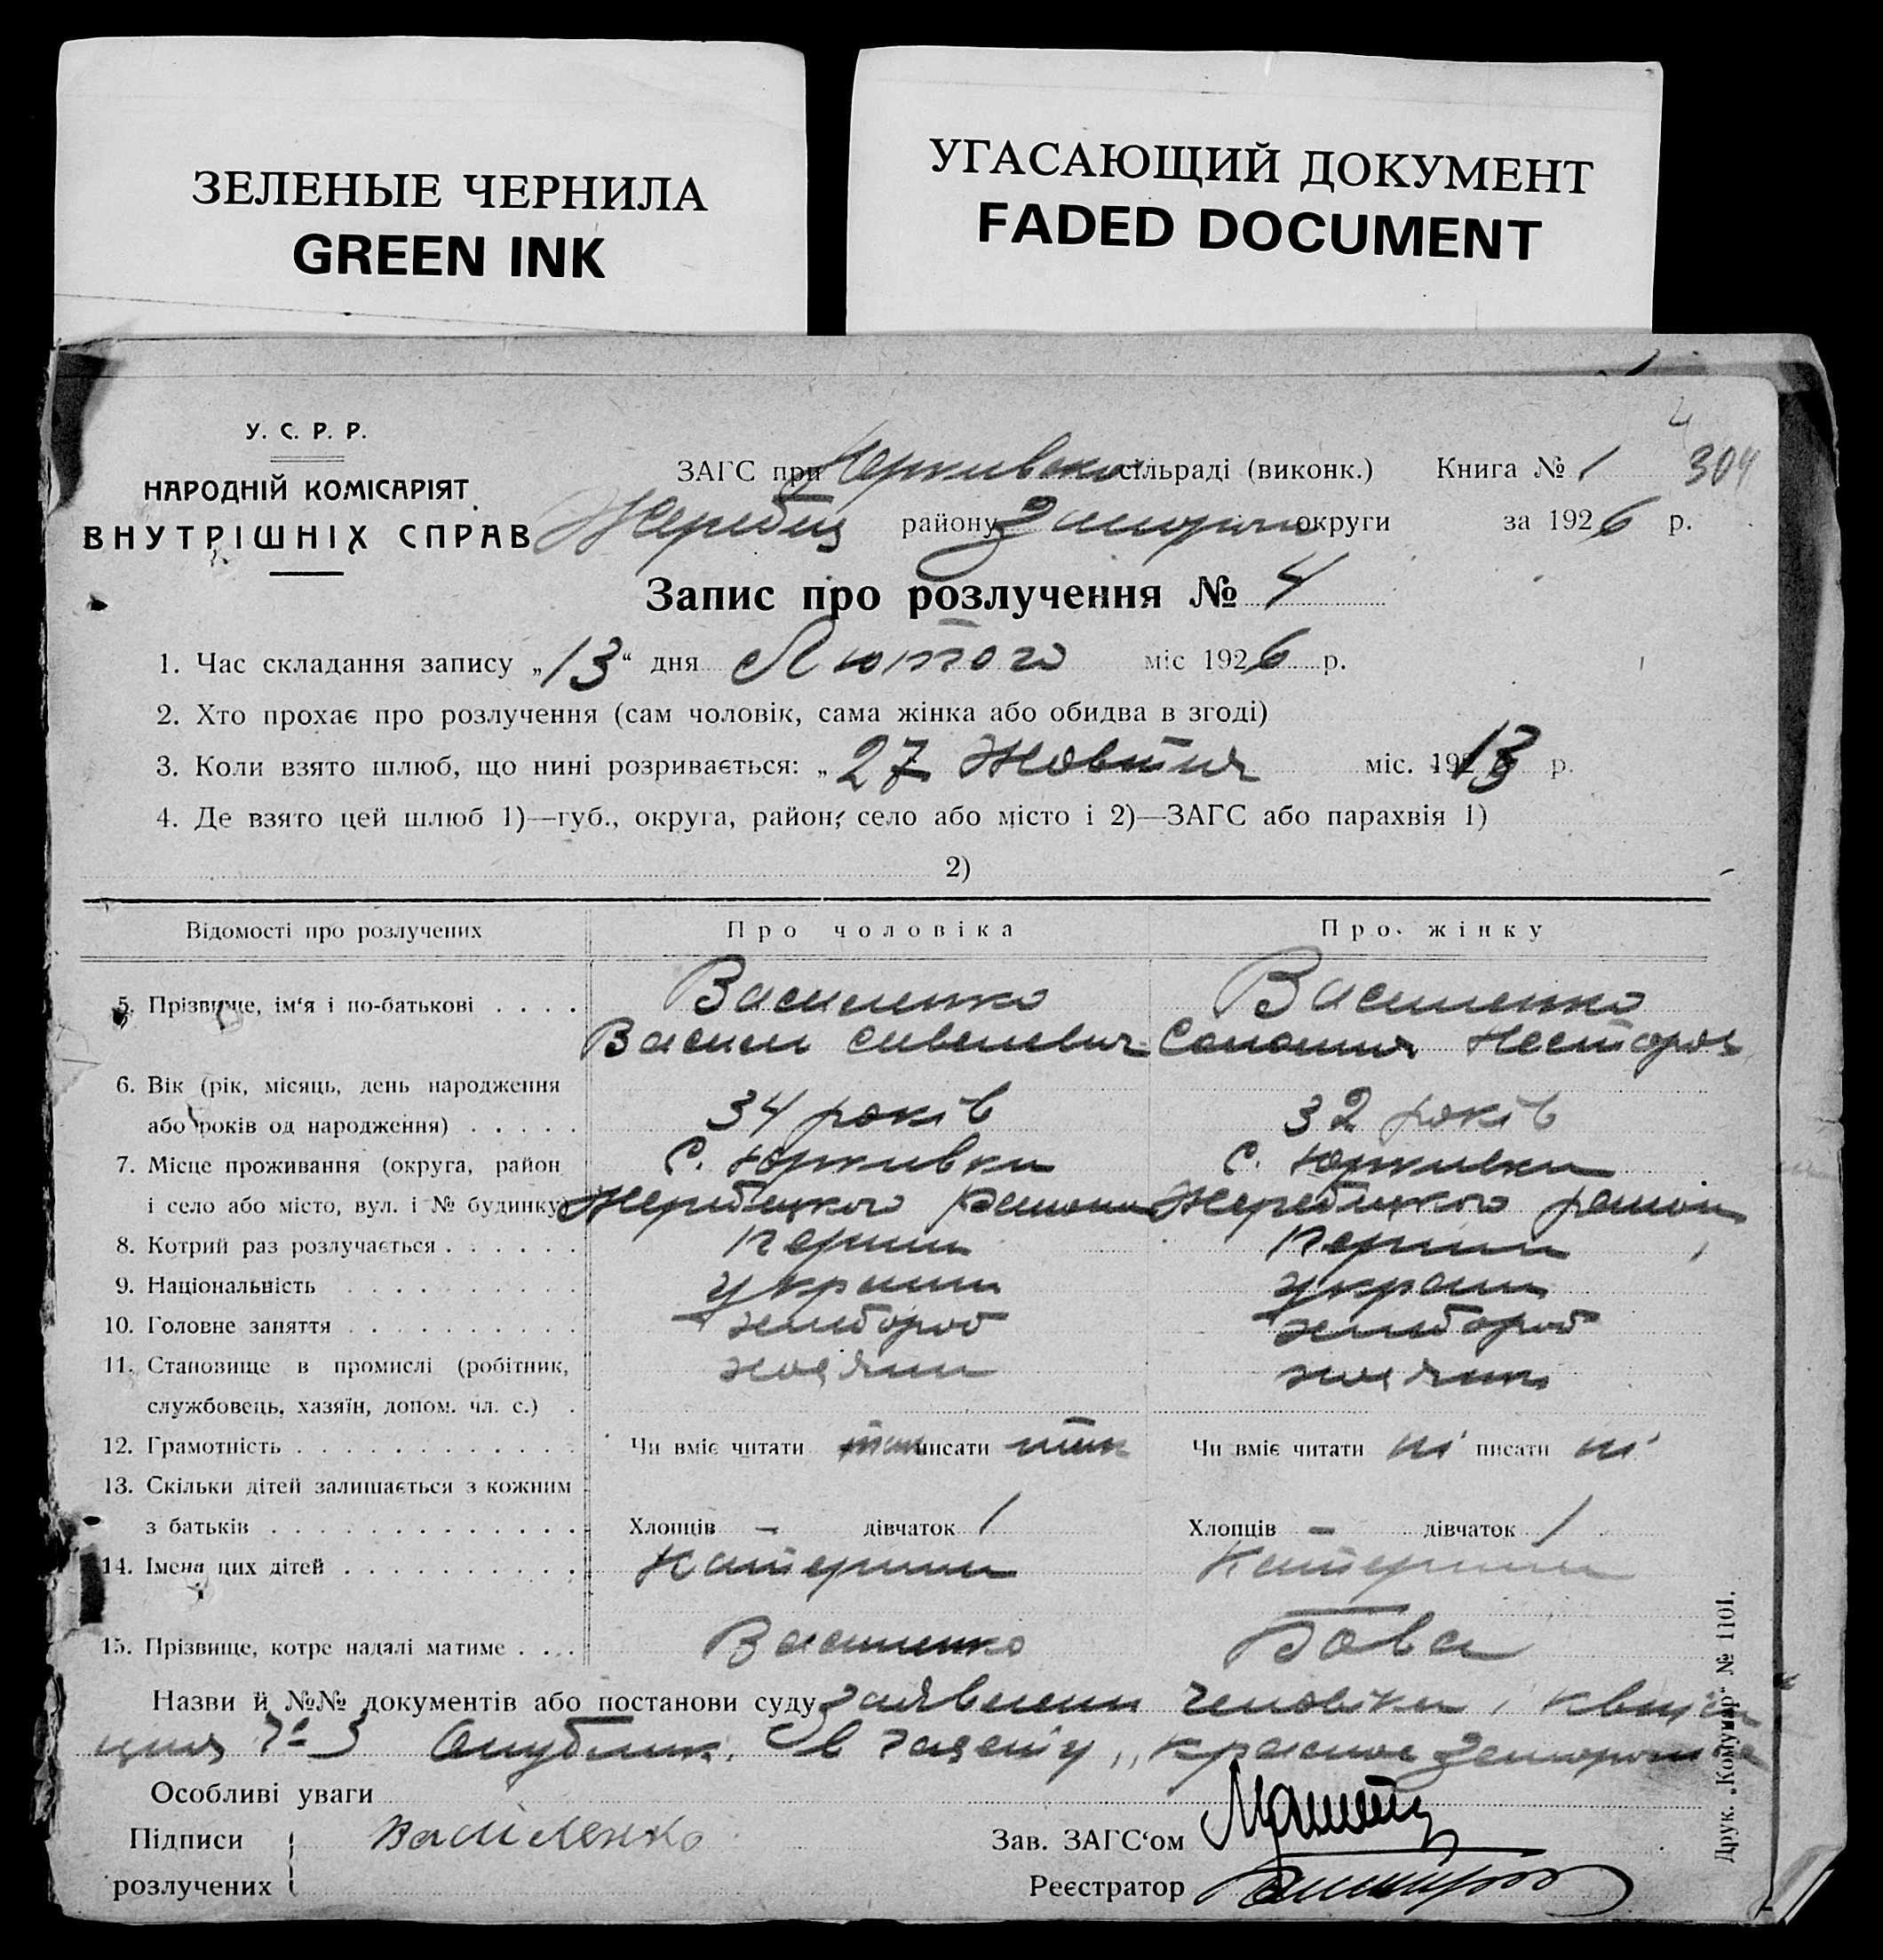 ЗЕЛЕНЫЕ ЧЕРНИЛА
GREEN INK
УГАСАЮЩИЙ ДОКУМЕНТ
FADED DOCUMENT
У. С. Р. Р.
НАРОДНІЙ КОМІСАРІЯТ
ВНУТРІШНІХ СПРАВ
4
304
ЗАГС при сільраді (виконк.) Книга № 1
Жеребец району Запорож округи за 1926 р.
Запис про розлучення № 4
1. Час складання запису „13“ дня Лютого міс 1926 р.
2. Хто прохає про розлучення (сам чоловік, сама жінка або обидва в згоді)
3. Коли взято шлюб, що нині розривається: „27 Жовтня міс. 1913 р.
4. Де взято цей шлюб 1)—губ., округа, район, село або місто і 2)—ЗАГС або парахвія 1)
2)
Відомості про розлучених Про чоловіка Про жінку
5. Прізвище, ім‘я і по-батькові . . . . Василенко Василенко
Васил Савелевич Нестором
6. Вік (рік, місяць, день народження
або років од народження) . . . . . 34 років 32 років
7. Місце проживання (округа, район С. Юркивки С. Юркивки
і село або місто, вул. і № будинку) Жеребецкого району Жеребецкого району
8. Котрий раз розлучається . . . . . . Перший Перший
9. Національність . . . . . . . . . . україн україн
10. Головне заняття . . . . . . . . . . хлибороб хлибороб
11. Становище в промислі (робітник, хазяин
службовець, хазяїн, допом. чл. с.) .
12. Грамотність . . . . . . . . . . . . Чи вміє читати так писати так Чи вміє читати ні писати ні
13. Скільки дітей залишається з кожним
з батьків . . . . . . . . . . . . . . Хлопців — дівчаток 1 Хлопців — дівчаток 1
14. Імена цих дітей . . . . . . . . . . Катерина Катерина
15. Прізвище, котре надалі матиме . . . Василенко Бова
Назви й №№ документів або постанови суду заявления чоловіка, квитан
ция № 3 Опублик. в газету „красное запорожье
Особливі уваги
Підписи Василенко Зав. ЗАГС‘ом
розлучених Реєстратор
Друк. „Комунар“ № 1101.